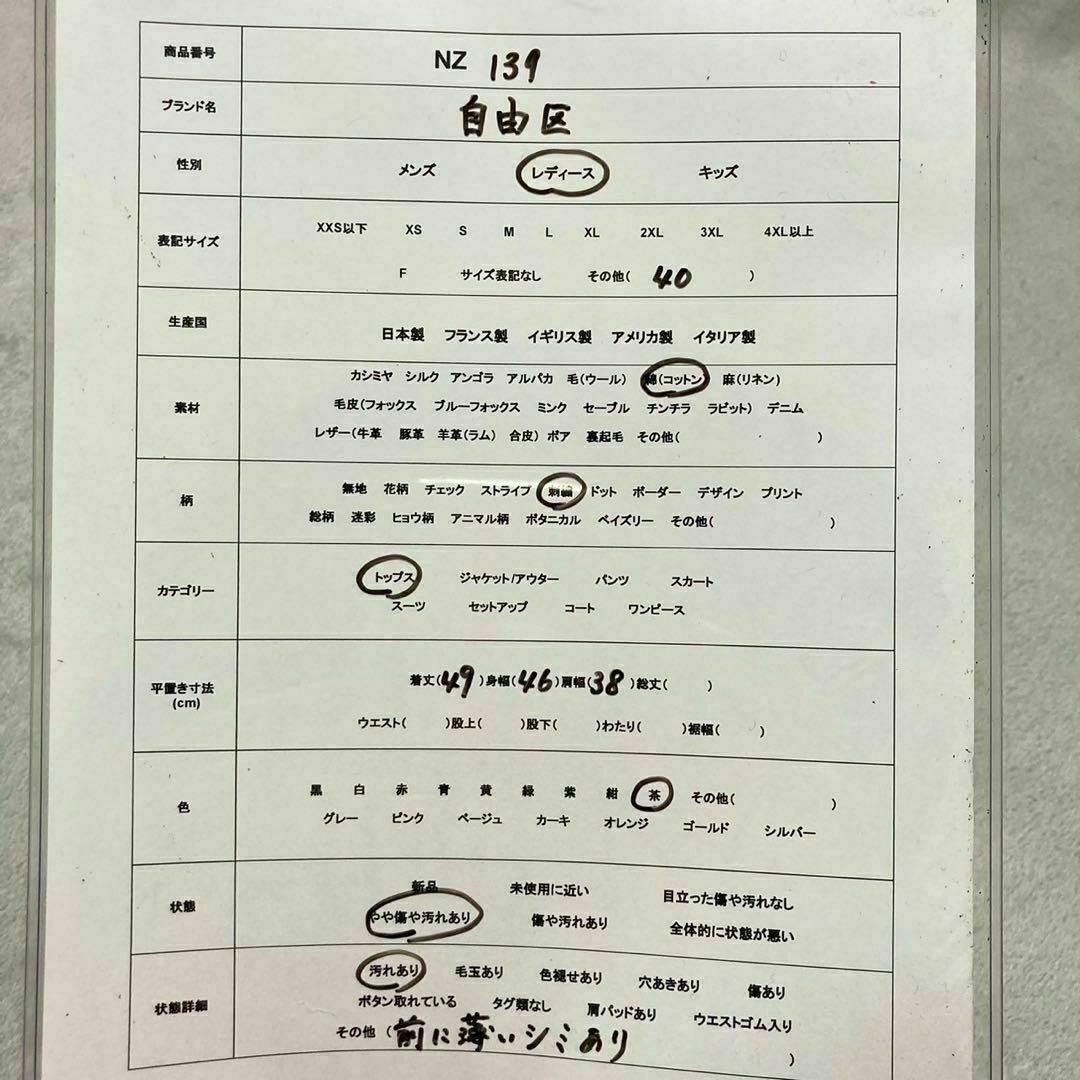 商品番号 NZ 139
ブランド名 自由区
性別 メンズ レディース キッズ
XXS以下 XS S M L XL 2XL 3XL 4XL以上
表記サイズ
F サイズ表記なし その他( 40 )
生産国 日本製 フランス製 イギリス製 アメリカ製 イタリア製
カシミヤ シルク アンゴラ アルパカ 毛(ウール) 綿(コットン) 麻(リネン)
素材 毛皮(フォックス ブルーフォックス ミンク セーブル チンチラ ラビット) デニム
レザー(牛革 豚革 羊革(ラム) 合皮) ボア 裏起毛 その他( )
柄 無地 花柄 チェック ストライプ 刺繍 ドット ボーダー デザイン プリント
総柄 迷彩 ヒョウ柄 アニマル柄 ボタニカル ペイズリー その他( )
カテゴリー トップス ジャケット/アウター パンツ スカート
スーツ セットアップ コート ワンピース
平置き寸法 着丈(49)身幅(46)肩幅(38)総丈( )
(cm) ウエスト( )股上( )股下( )わたり( )裾幅( )
色 黒 白 赤 青 黄 緑 紫 紺 茶 その他( )
グレー ピンク ベージュ カーキ オレンジ ゴールド シルバー
状態 新品 未使用に近い 目立った傷や汚れなし
やや傷や汚れあり 傷や汚れあり 全体的に状態が悪い
汚れあり 毛玉あり 色褪せあり 穴あきあり 傷あり
状態詳細 ボタン取れている タグ類なし 肩パッドあり ウエストゴム入り
その他 ( 前に薄いシミあり )